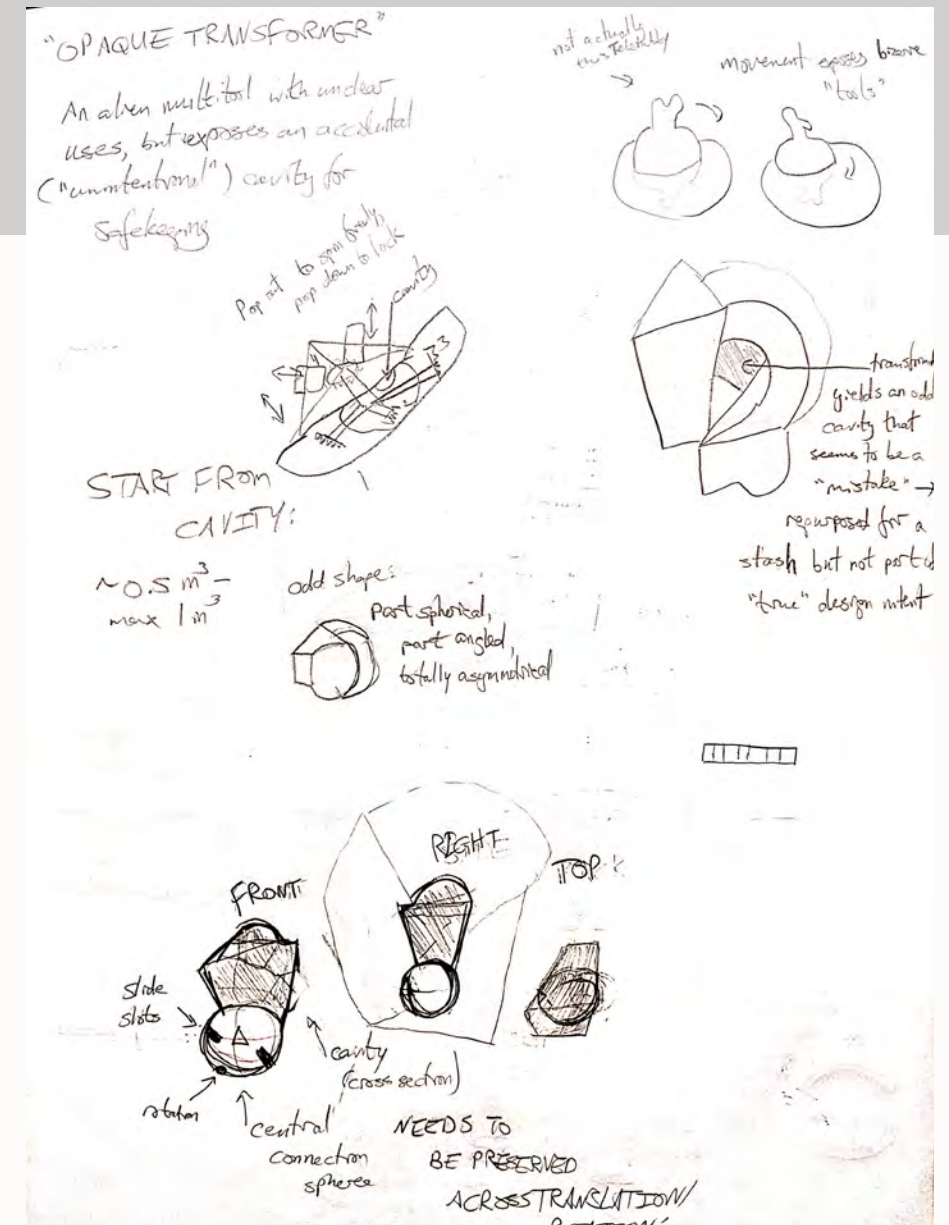 "OPAQUE TRANSFORMER"
An alien multitool with unclear
uses, but exposes an accidental
("unintentional") cavity for
safekeeping
not actually
this Teletubby
movement exposes bizarre
"tools"
Pop out to spin freely,
pop down to lock
cavity
transform
yields an odd
cavity that
seems to be a
"mistake" →
repurposed for a
stash but not part of
"true" design intent
START FROM
CAVITY:
~0.5 m³ –
max 1 m³
odd shape:
part spherical,
part angled,
totally asymmetrical
FRONT
RIGHT
TOP
slide
slots
rotation
central
connection
sphere
cavity
(cross section)
NEEDS TO
BE PRESERVED
ACROSS TRANSLATION/